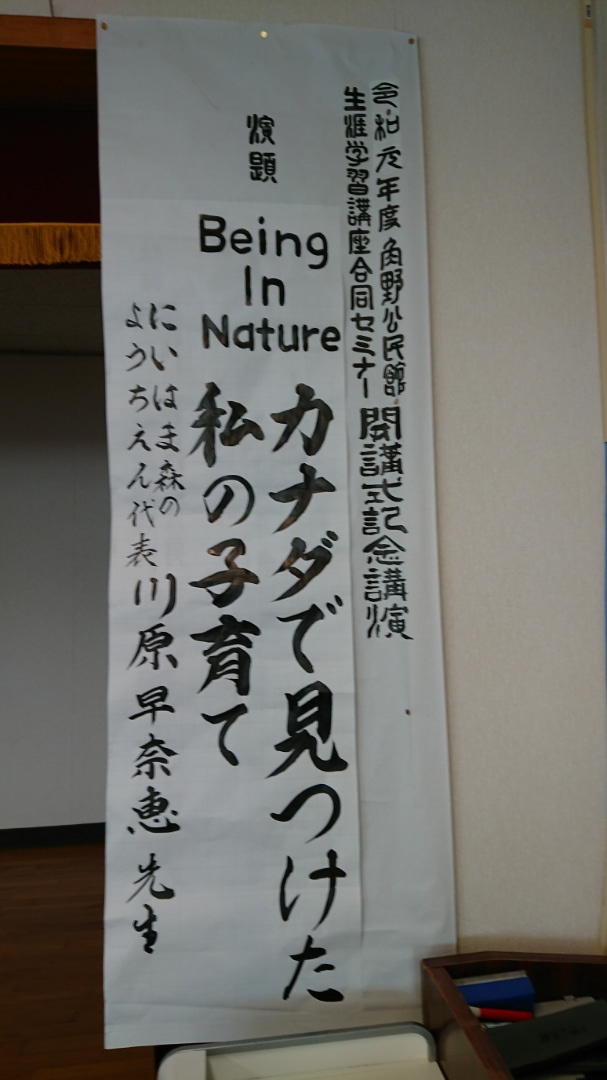 令和元年度 角野公民館
生涯学習講座合同セミナー
開講式記念講演
演題
Being
In
Nature
カナダで見つけた
私の子育て
にいはま森の
ようちえん代表
川原早奈恵 先生